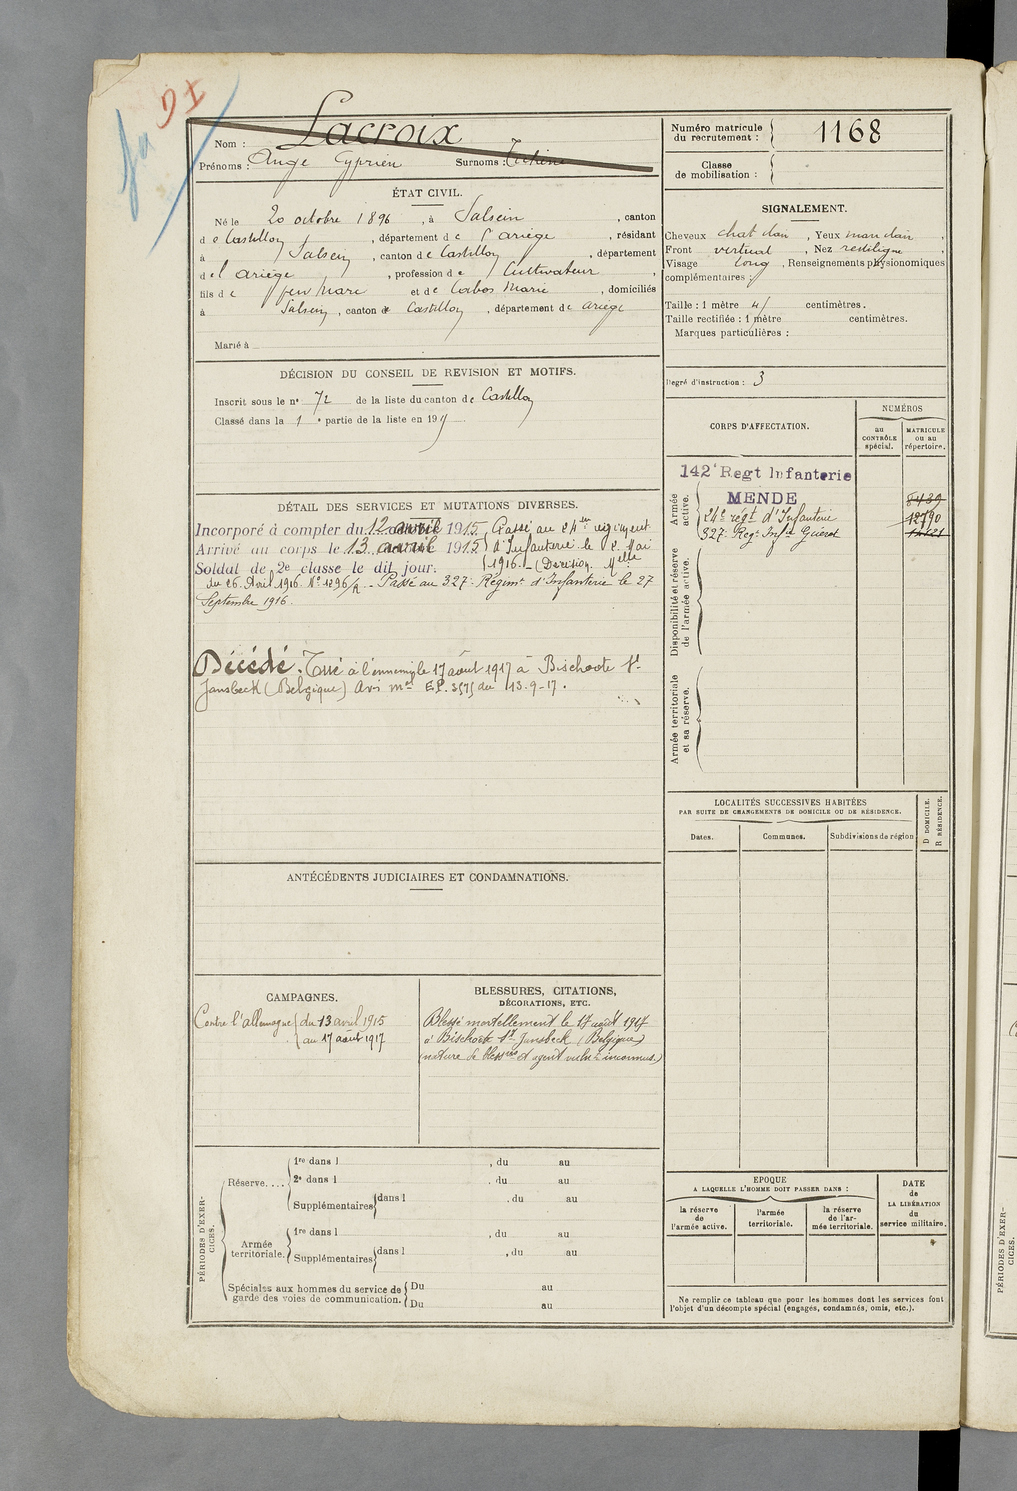 Nom : Lacroix
Prénoms : Ange Cyprien Surnoms :
ÉTAT CIVIL.
Né le 20 octobre 1896, à Salsein, canton
de Castillon, département de l'ariège, résidant
à Salsein, canton de Castillon, département
de l'ariège, profession de Cultivateur,
fils de feu Marc et de Cabos Marie, domiciliés
à Salsein, canton de Castillon, département de ariège
Marié à
DÉCISION DU CONSEIL DE REVISION ET MOTIFS.
Inscrit sous le n° 72 de la liste du canton de Castillon
Classé dans la 1e partie de la liste en 19
DÉTAIL DES SERVICES ET MUTATIONS DIVERSES.
Incorporé à compter du 12 avril 1915
Arrivé au corps le 13 avril 1915
Soldat de 2e classe le dit jour.
Passé au 24me régiment
d'Infanterie le 2 Mai
1916. (Décision Melle
du 26 Avril 1916 N° 1296/R - Passé au 327e Régimt d'Infanterie le 27
Septembre 1916.
Décédé. Tué à l'ennemi le 17 août 1917 à Bischoote St
Jansbeck (Belgique) Avis mel E.P. 3575 du 13-9-17.
ANTÉCÉDENTS JUDICIAIRES ET CONDAMNATIONS.
CAMPAGNES.
Contre l'allemagne du 13 avril 1915
au 17 août 1917
BLESSURES, CITATIONS,
DÉCORATIONS, ETC.
Blessé mortellement le 17 août 1917
à Bischoote St Jansbeck (Belgique)
(nature de blessres et agent vulnt inconnus.)
PÉRIODES D'EXER-
CICES.
Réserve....
1re dans l , du au
2e dans l , du au
Supplémentaires dans l , du au
Armée
territoriale.
1re dans l , du au
Supplémentaires dans l , du au
Spéciales aux hommes du service de
garde des voies de communication.
Du au
Du au
Numéro matricule
du recrutement : 1168
Classe
de mobilisation :
SIGNALEMENT.
Cheveux chat clair, Yeux marr clair
Front vertical, Nez rectiligne,
Visage long, Renseignements physionomiques
complémentaires :
Taille : 1 mètre centimètres.
Taille rectifiée : 1 mètre centimètres.
Marques particulières :
Degré d'instruction : 3
CORPS D'AFFECTATION.
NUMÉROS
au
CONTRÔLE
spécial.
MATRICULE
ou au
répertoire.
Armée
active.
142e Regt Infanterie
MENDE 8439
24e régt d'Infanterie 12790
327e Regt Infie Guéret
Disponibilité et réserve
de l'armée active.
Armée territoriale
et sa réserve.
LOCALITÉS SUCCESSIVES HABITÉES
PAR SUITE DE CHANGEMENTS DE DOMICILE OU DE RÉSIDENCE.
Dates.
Communes.
Subdivisions de région
D DOMICILE.
R RÉSIDENCE.
EPOQUE
A LAQUELLE L'HOMME DOIT PASSER DANS :
la réserve
de
l'armée active.
l'armée
territoriale.
la réserve
de l'ar-
mée territoriale.
DATE
de
LA LIBÉRATION
du
service militaire.
Ne remplir ce tableau que pour les hommes dont les services font
l'objet d'un décompte spécial (engagés, condamnés, omis, etc.).
PÉRIODES D'EXER-
CICES.